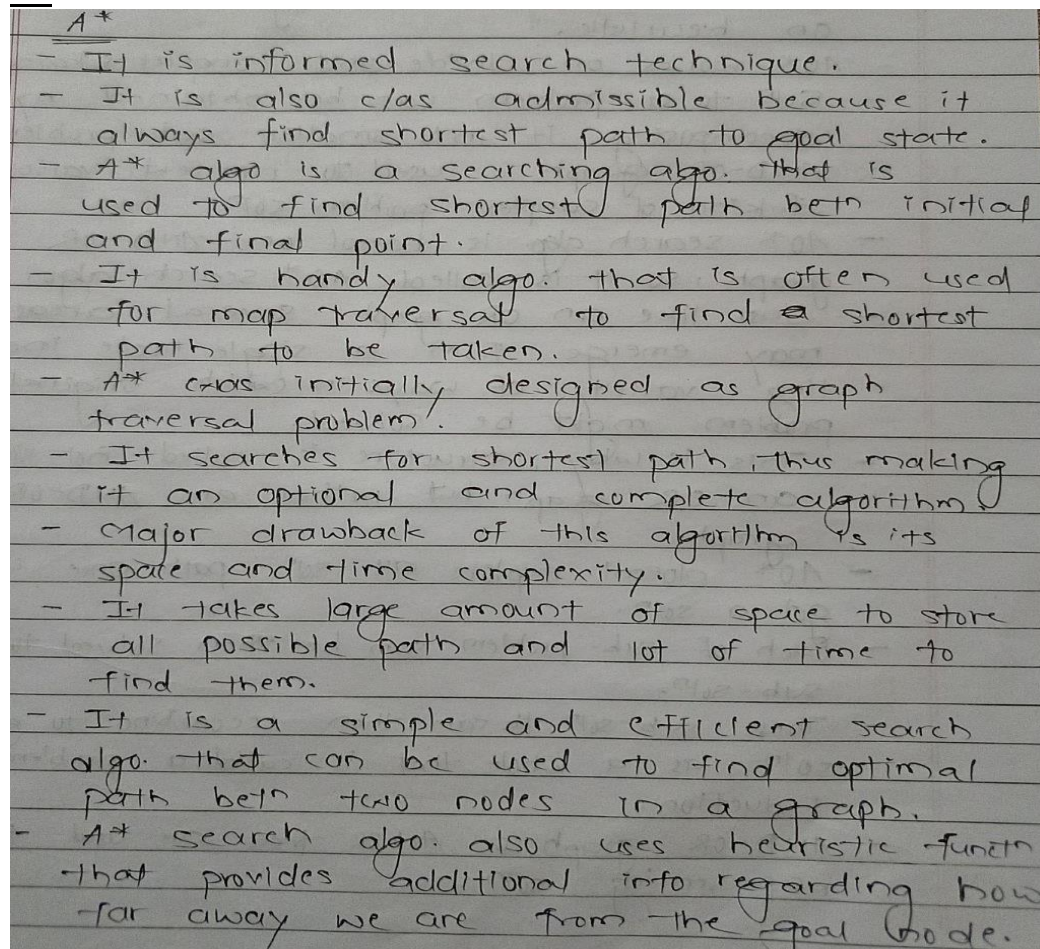 A*
- It is informed search technique.
- It is also c/as admissible because it
always find shortest path to goal state.
- A* algo is a searching algo. that is
used to find shortest path betn initial
and final point.
- It is handy algo. that is often used
for map traversal to find a shortest
path to be taken.
- A* was initially designed as graph
traversal problem.
- It searches for shortest path, thus making
it an optional and complete algorithm.
- Major drawback of this algorithm is its
space and time complexity.
- It takes large amount of space to store
all possible path and lot of time to
find them.
- It is a simple and efficient search
algo. that can be used to find optimal
path betn two nodes in a graph.
- A* search algo. also uses heuristic functn
that provides additional info regarding how
far away we are from the goal node.